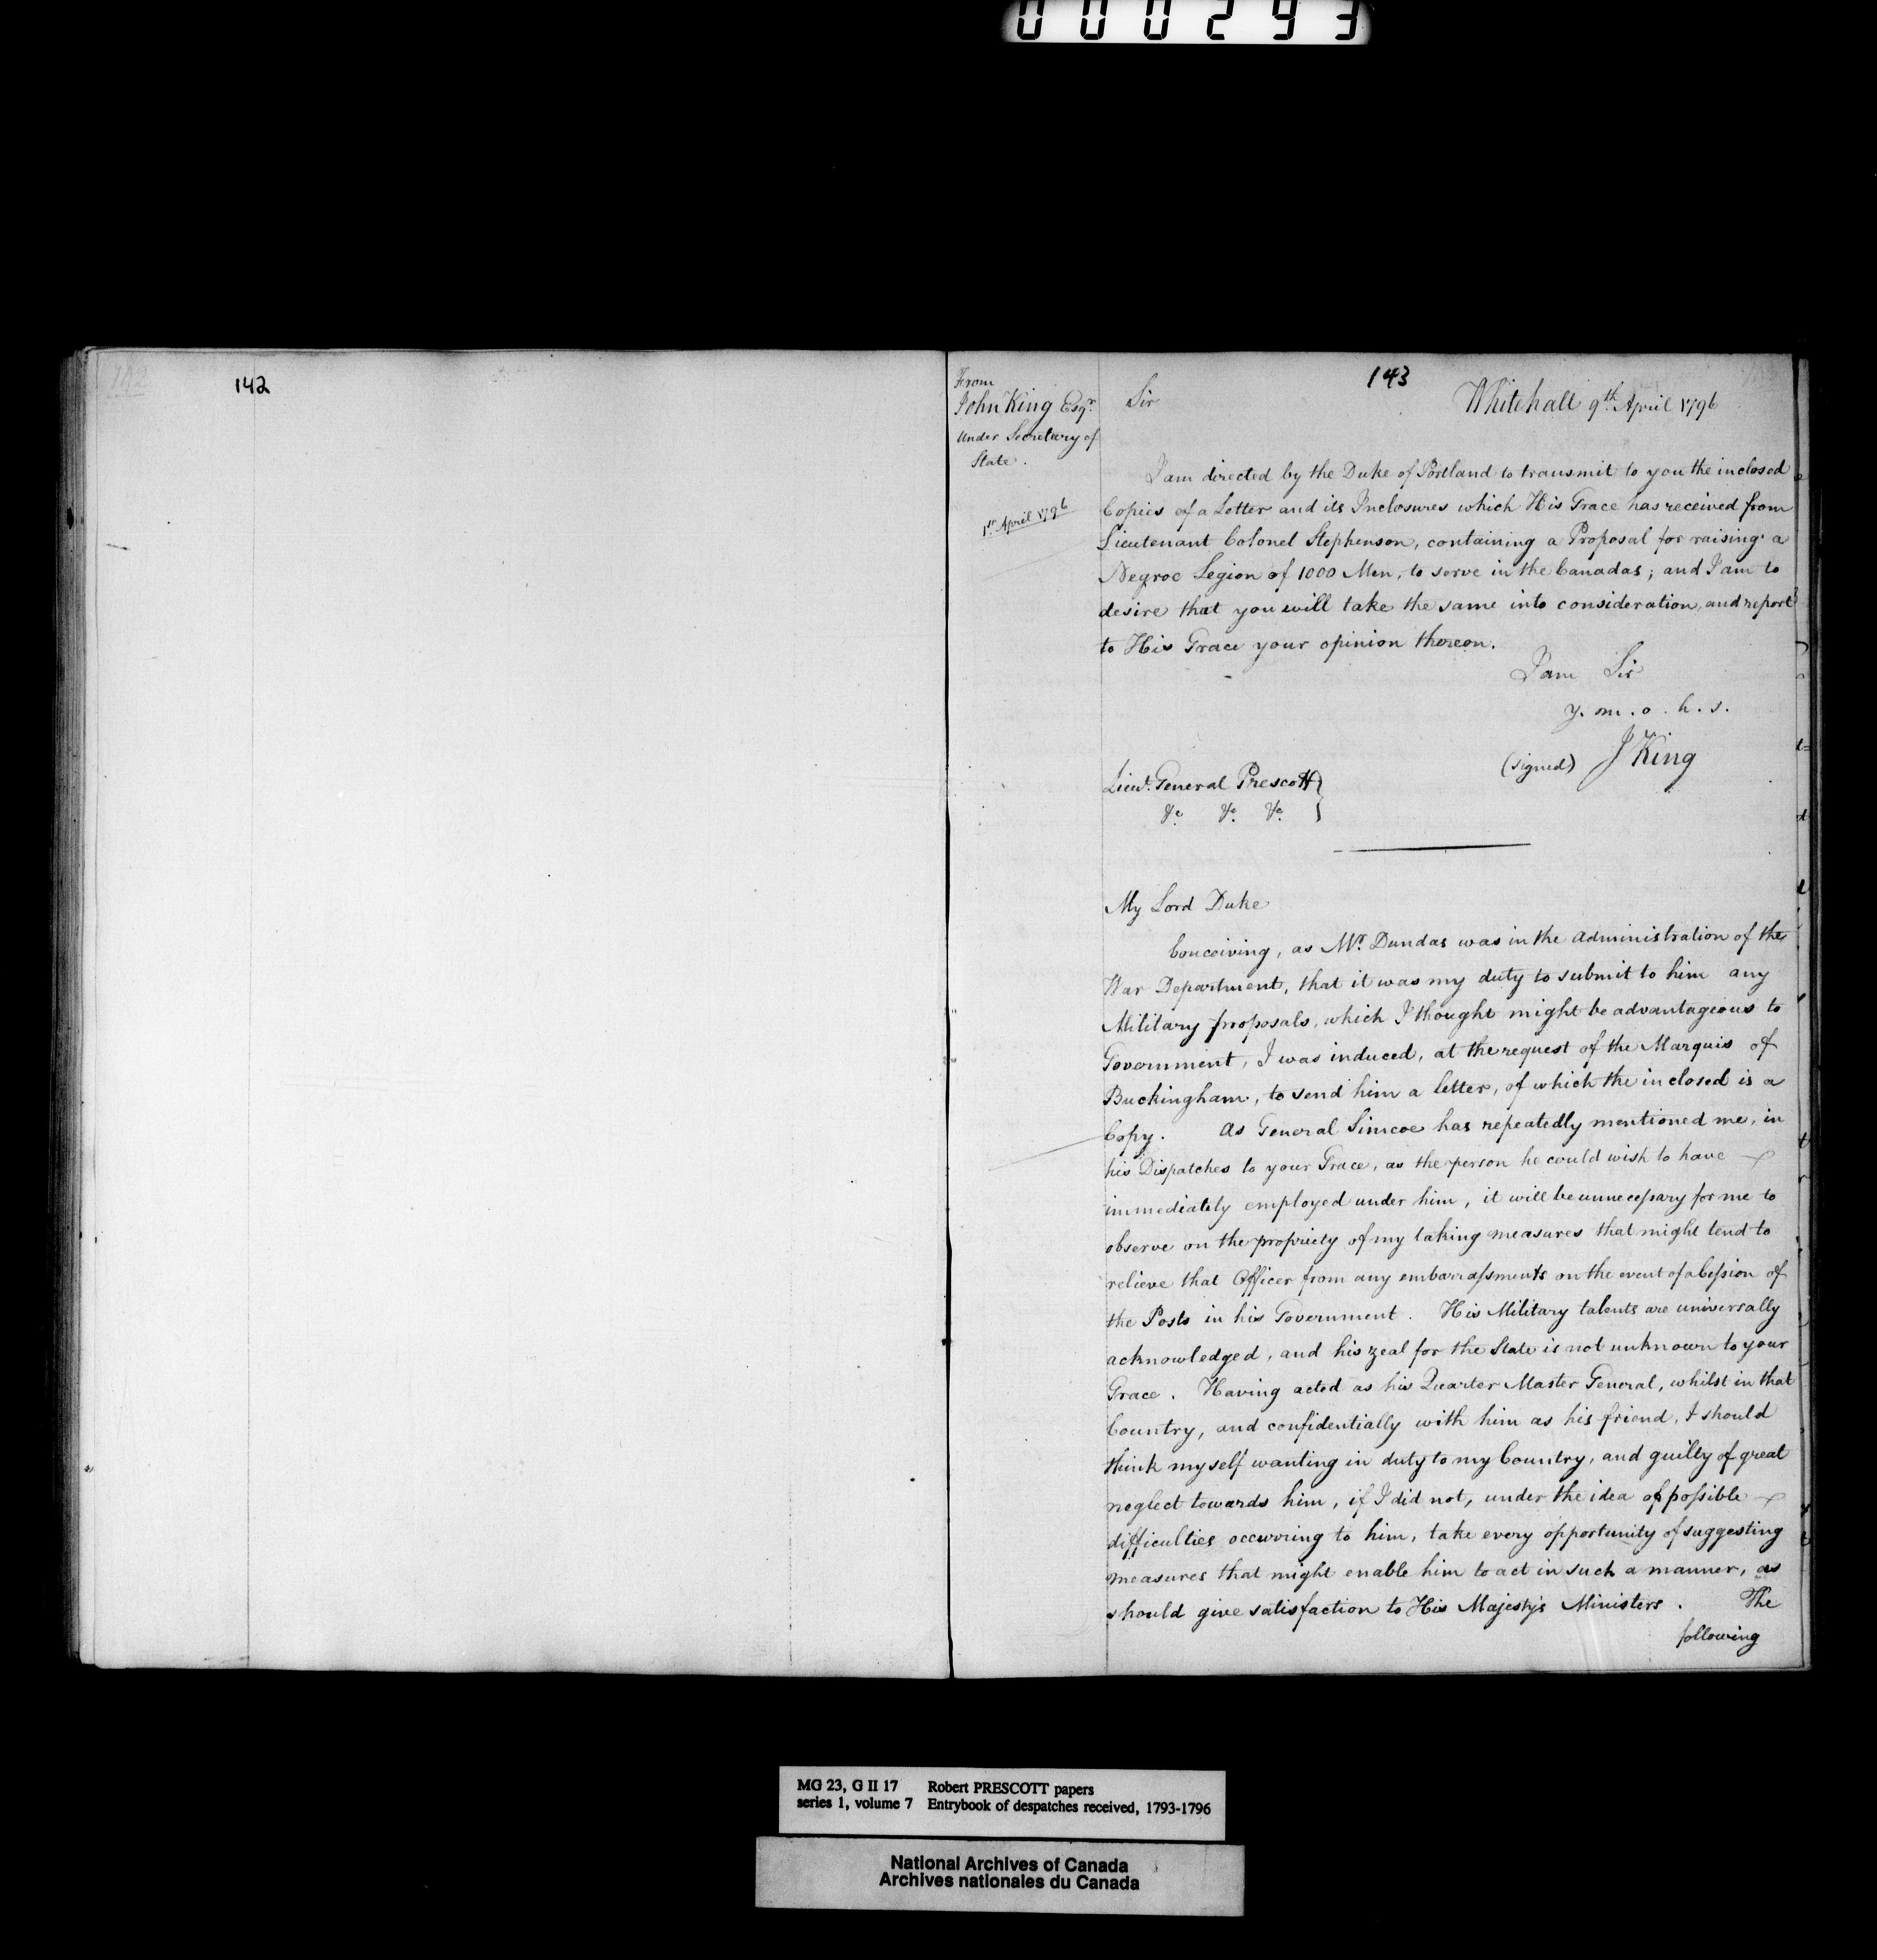 000293
142
143
From
John King Esqr.
Under Secretary of
State.
1st April 1796
Sir
Whitehall 9th. April 1796
I am directed by the Duke of Portland to transmit to you the inclosed
Copies of a Letter and its Inclosures which His Grace has received from
Lieutenant Colonel Stephenson, containing a Proposal for raising a
Negroe Legion of 1000 Men, to serve in the Canadas; and I am to
desire that you will take the same into consideration, and report
to His Grace your opinion thereon.
I am Sir
y. m. o. h. s.
(signed) J King
Lieut. General Prescott}
&c. &c. &c.
My Lord Duke
Conceiving, as Mr. Dundas was in the Administration of the
War Department, that it was my duty to submit to him any
Military proposals, which I thought might be advantageous to
Government, I was induced, at the request of the Marquis of
Buckingham, to send him a letter, of which the inclosed is a
Copy. As General Simcoe has repeatedly mentioned me, in
his Dispatches to your Grace, as the person he could wish to have
immediately employed under him, it will be unnecessary for me to
observe on the propriety of my taking measures that might tend to
relieve that Officer from any embarrassments on the event of a Cession of
the Posts in his Government. His Military talents are universally
acknowledged, and his zeal for the State is not unknown to your
Grace. Having acted as his Quarter Master General, whilst in that
Country, and confidentially with him as his friend, I should
think myself wanting in duty to my Country, and guilty of great
neglect towards him, if I did not, under the idea of possible
difficulties occurring to him, take every opportunity of suggesting
measures that might enable him to act in such a manner, as
should give satisfaction to His Majesty's Ministers. The
following
MG 23, G II 17 Robert PRESCOTT papers
series 1, volume 7 Entrybook of despatches received, 1793-1796
National Archives of Canada
Archives nationales du Canada